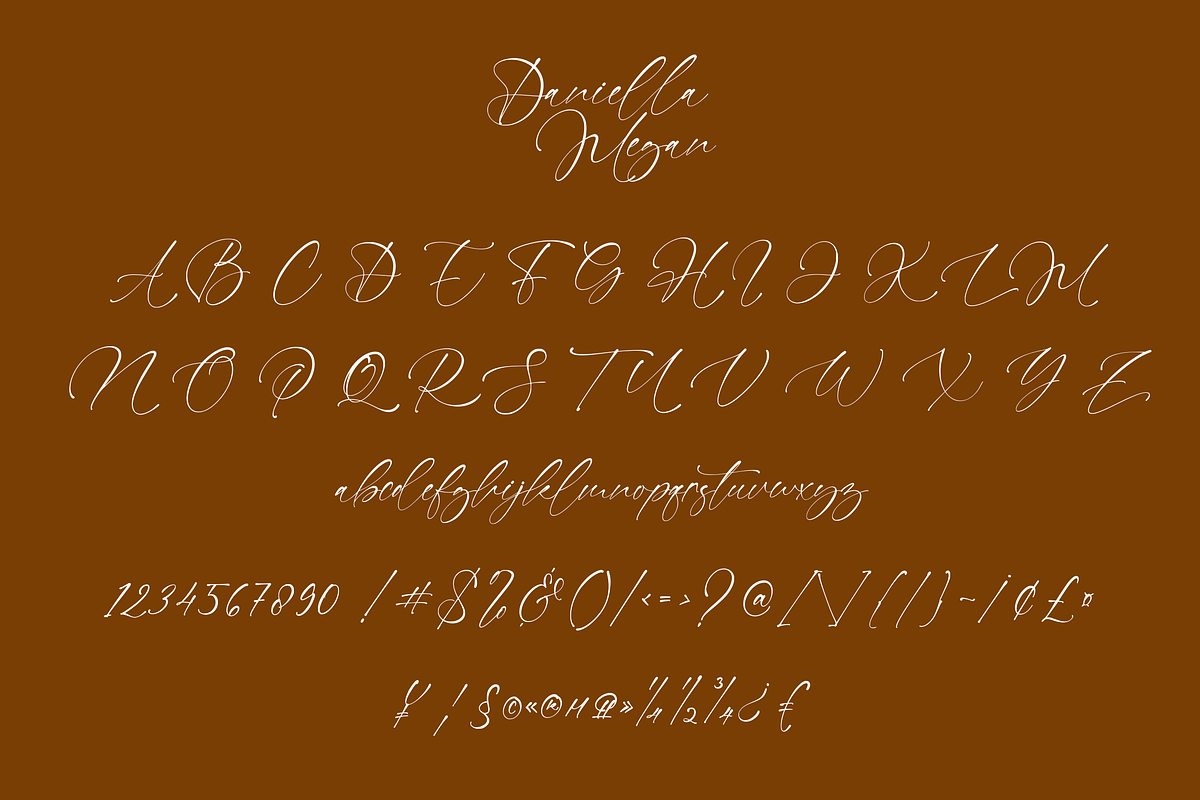 Daniella
Megan
A B C D E F G H I J K L M
N O P Q R S T U V W X Y Z
abcdefghijklmnopqrstuvwxyz
1234567890 ! # $ % & ( ) / < = > ? @ [ \ ] { | } ~ ¡ ¢ £ ¤
¥ ¦ § © « ® » ¼ ½ ¾ ¿ €